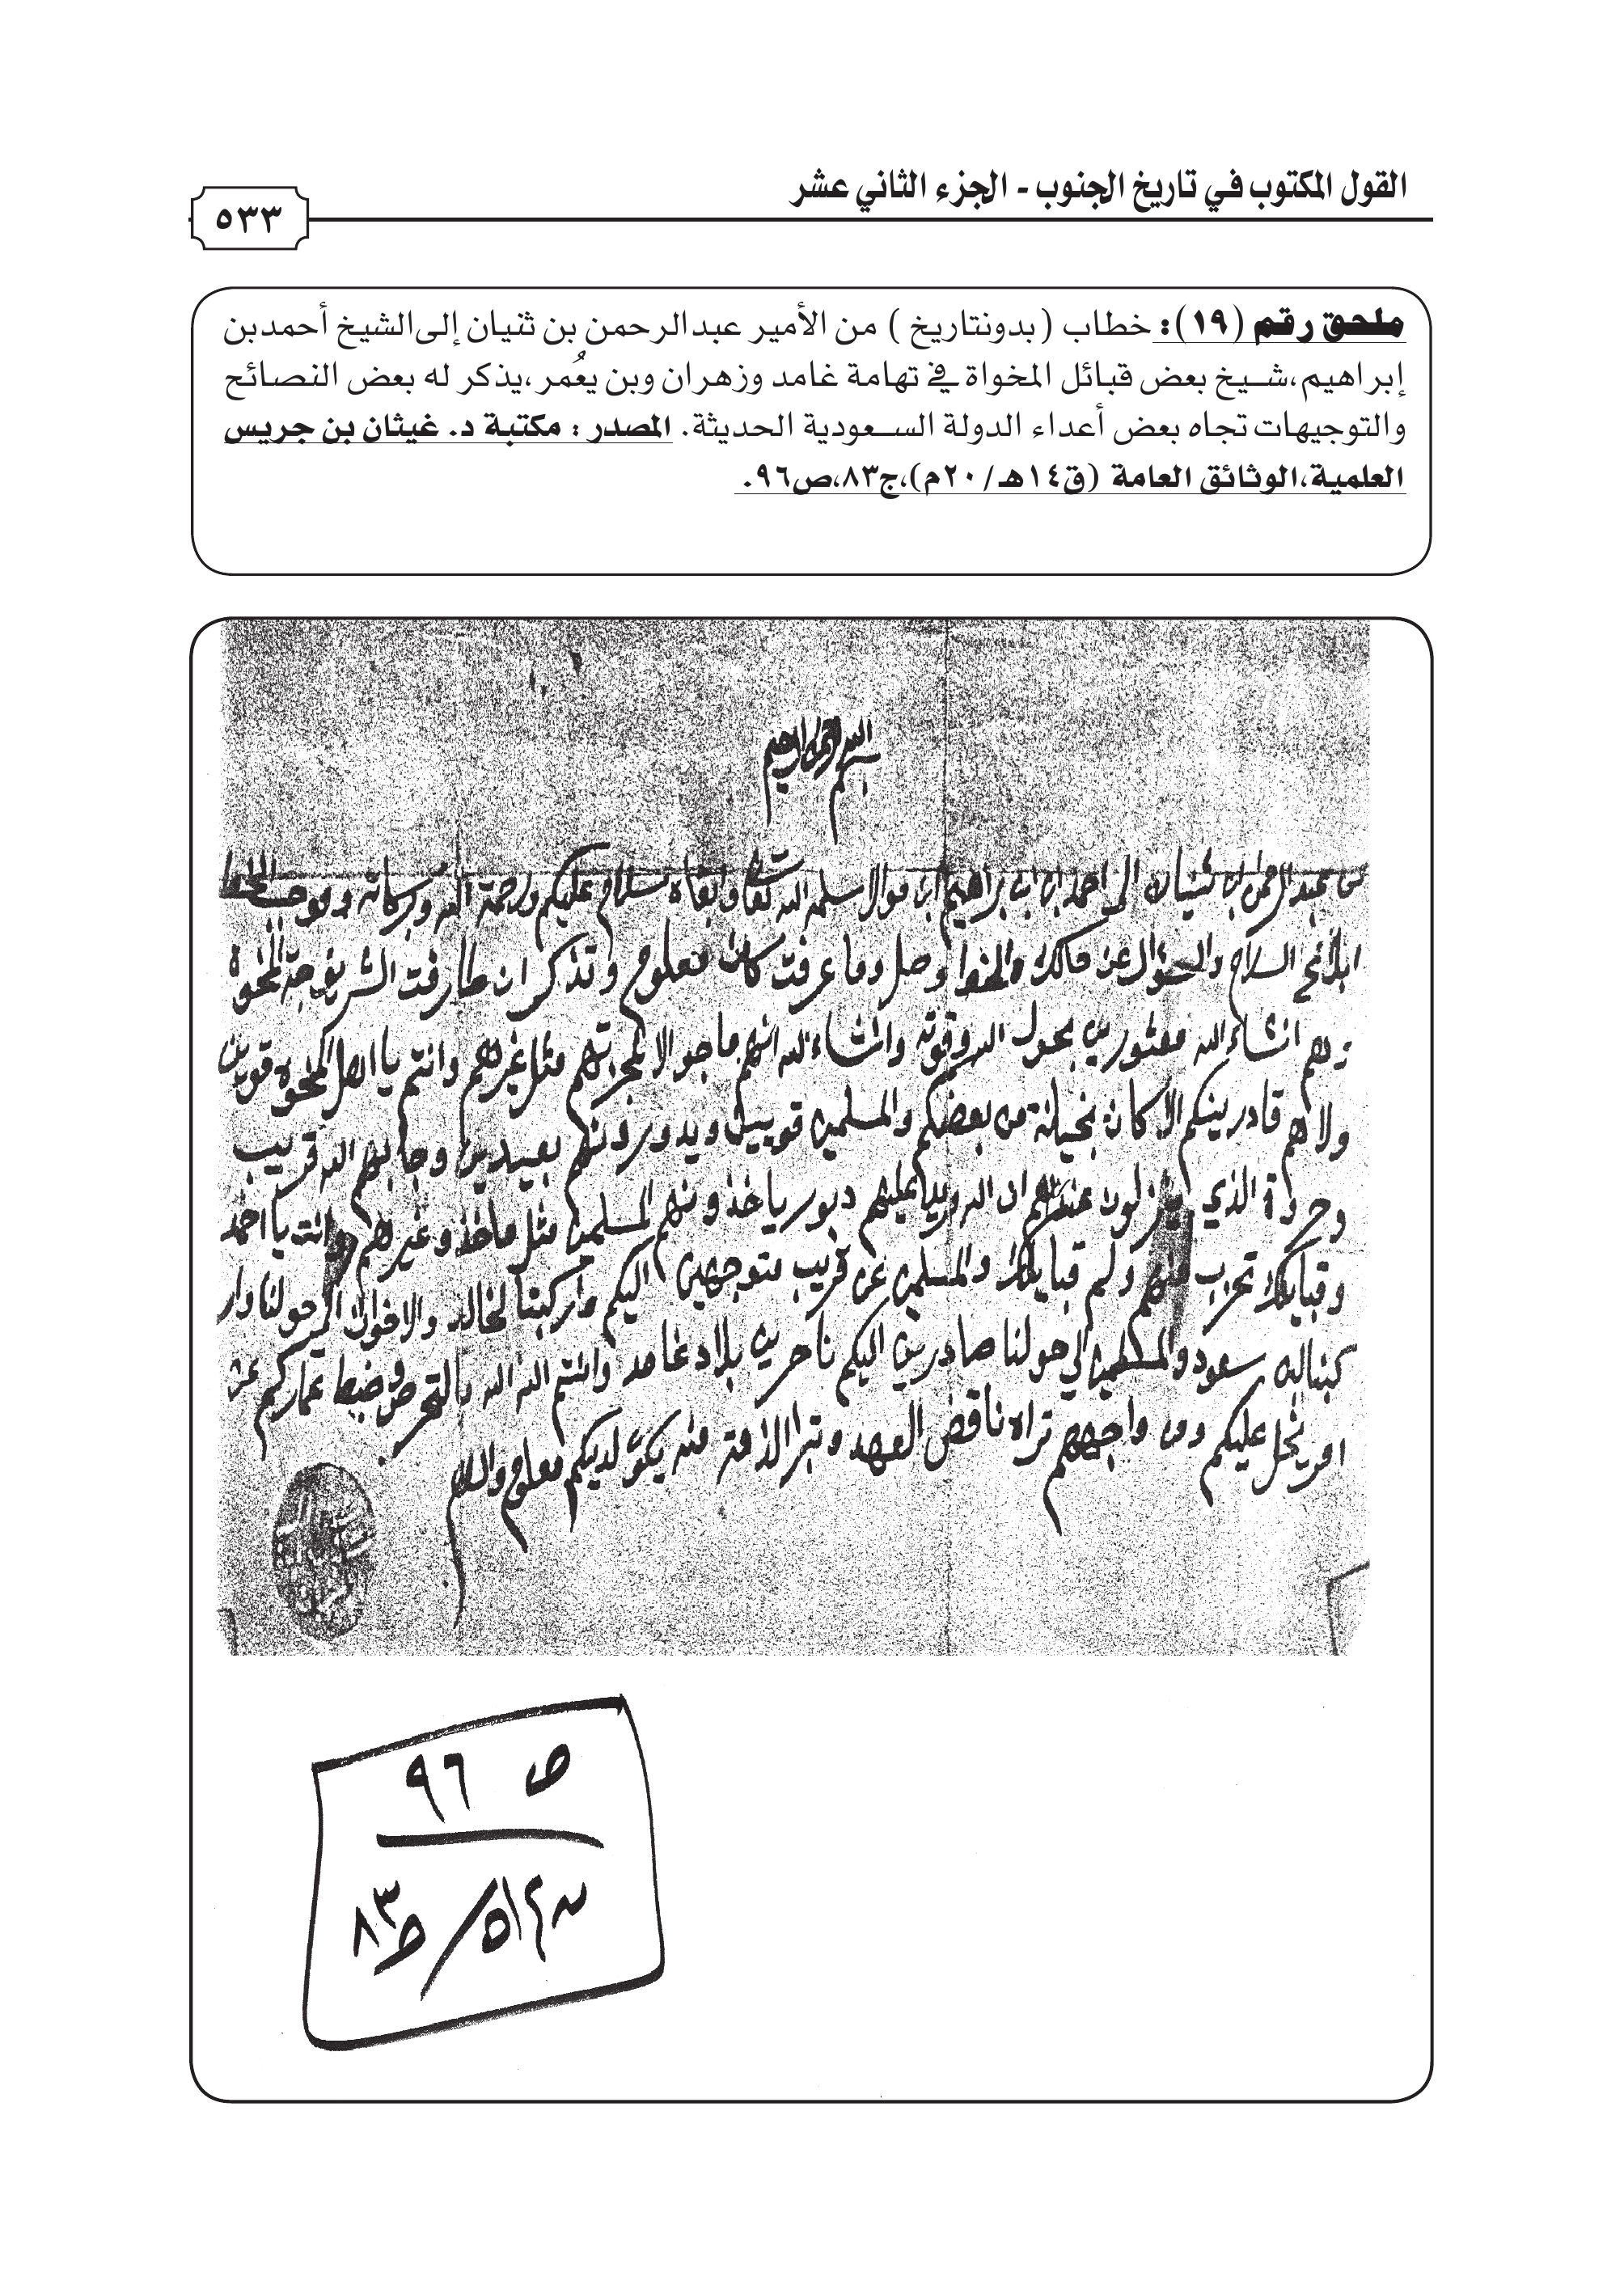 القول المكتوب في تاريخ الجنوب - الجزء الثاني عشر
٥٣٣
ملحق رقم (١٩): خطاب (بدونتاريخ) من الأمير عبدالرحمن بن ثنيان إلى الشيخ أحمدبن
إبراهيم،شيخ بعض قبائل المخواة في تهامة غامد وزهران وبن يعُمر،يذكر له بعض النصائح
والتوجيهات تجاه بعض أعداء الدولة السعودية الحديثة. المصدر : مكتبة د. غيثان بن جريس
العلمية،الوثائق العامة (ق١٤هـ/٢٠م)،ج٨٣،ص٩٦.
بسم الله الرحمن الرحيم
من عبدالرحمن ابن ثنيان الى احمد ابن ابراهيم ابن سلمه الله تعالى وابقاه سلام عليكم ورحمة الله وبركاته وموجب الخط
ابلاغ السلام والسؤال عن حالك والخط وصل وما عرفت كان معلوم وتذكر ان طارفت الشريف جة المخوة
وهم انشاء الله بحول الله وقوته وانشاء الله انهم ما جو الا مثل غيرهم وانتم يا اهل المخوة قويين
ولاهم قادرينكم الا كان من بعضكم والمسلمين بعيدين وجابهم الله قريب
الذي ان الله دبور ياخذونهم المسلمين مثل ماخذو غيرهم وانت يا احمد
وقبايلك ولم قبايلك والمسلمين عن قريب متوجهين اليكم واركبنا لخالد والاخوان الي حولنا وار
كبنا سعود والمسلمين الي حولنا صادرين اليكم بلاد غامد وانتم الله الله بالتحرص وضبط عن
امر يخل عليكم ومن واجههم تراه ناقض العهد وتبرا الذمة منه يكون لديكم معلوم والسلام
ص ٩٦
ج ٨٣